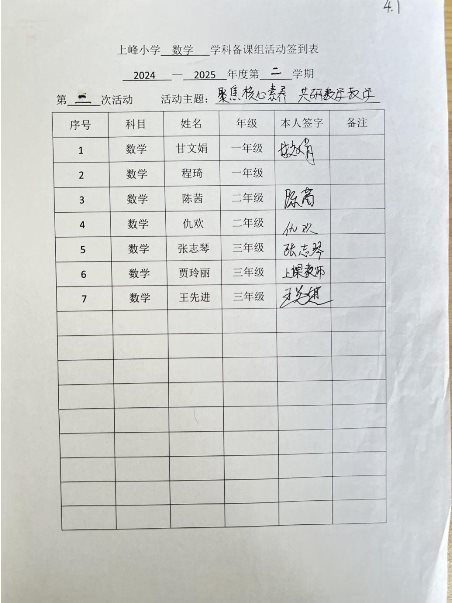 4.1
上峰小学 数学 学科备课组活动签到表
2024 — 2025 年度第 二 学期
第 二 次活动 活动主题: 聚焦核心素养 共研数学教学
序号 科目 姓名 年级 本人签字 备注
1 数学 甘文娟 一年级
2 数学 程琦 一年级
3 数学 陈茜 二年级 陈茜
4 数学 仇欢 二年级 仇欢
5 数学 张志琴 三年级 张志琴
6 数学 贾玲丽 三年级 上课教师
7 数学 王先进 三年级 王先进